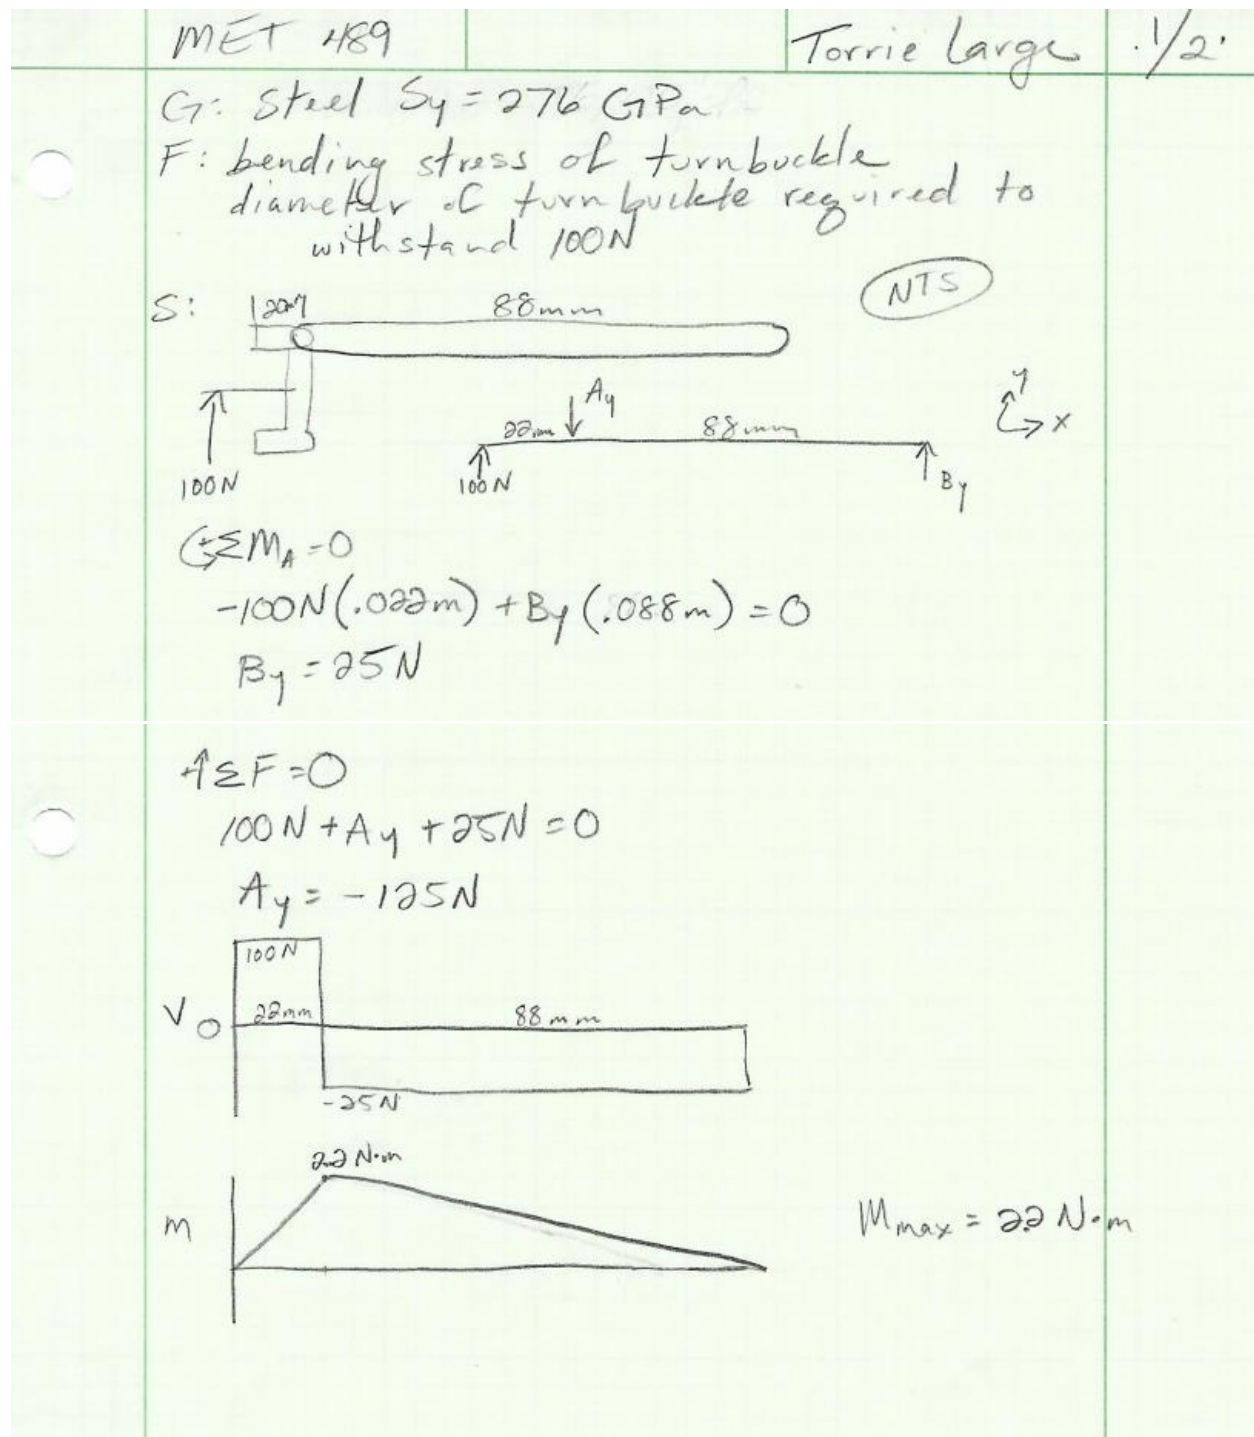 MET 489 Torrie Large 1/2
G: Steel Sy = 276 GPa
F: bending stress of turnbuckle
diameter of turnbuckle required to
withstand 100N
NTS
S: 88mm
Ay
22mm 88mm
y
x
100N 100N By
ΣM_A = 0
-100N(.022m) + By(.088m) = 0
By = 25N
+↑ΣF = 0
100N + Ay + 25N = 0
Ay = -125N
100N
V 0 22mm 88mm
-25N
2.2 N·m
m
Mmax = 2.2 N·m